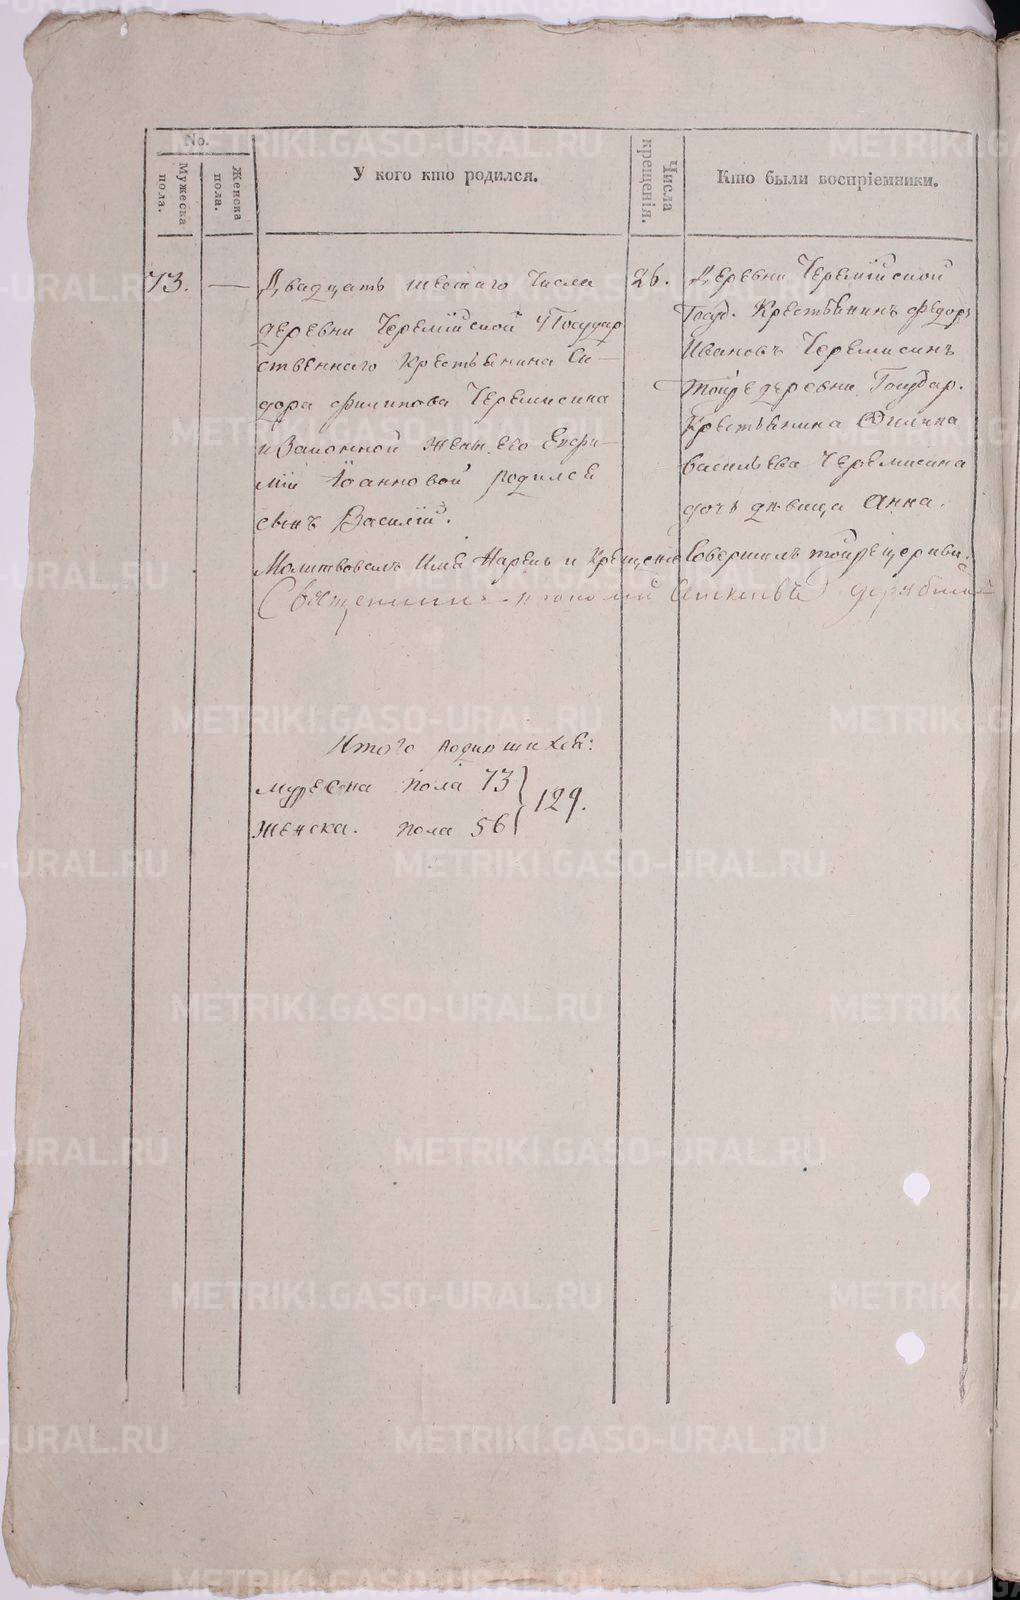 No.
Мужеска пола.
Женска пола.
У кого кто родился.
Числа крещенія.
Кто были воспріемники.
73. —
Двадцать шестаго числа
деревни Черемійской Государ
ственнаго Крестьянина Си–
дора Филипова Черемисина
и Законной жены его Евфи–
міи Іоанновой родился
сынъ Василій.
26.
Деревни Черемійской
Госуд. Крестьянинъ Федоръ
Ивановъ Черемисинъ
тойже деревни Государ.
Крестьянина Филипа
Васильева Черемисина
дочь девица Анна.
Молитвовалъ Имя Нарекъ и Крещение Совершилъ тойже церкви
Священникъ
Итого родившихся:
мужеска пола 73
женска. пола 56
129.
METRIKI.GASO-URAL.RU